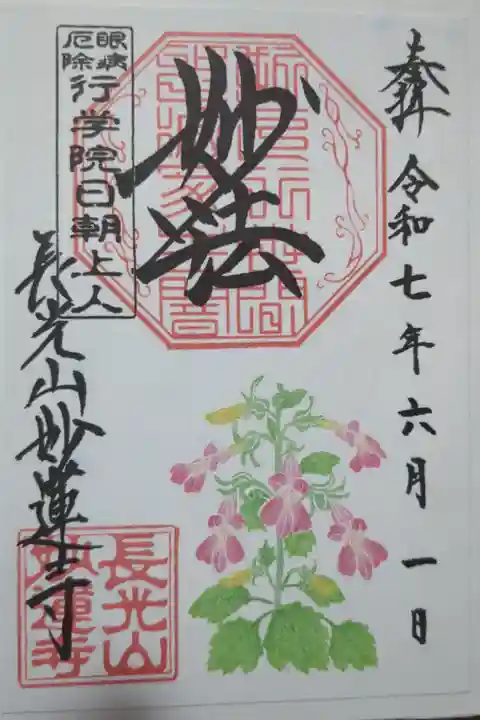 奉拝 令和七年六月一日
妙法
眼病
厄除
行学院日朝上人
長光山妙蓮寺
長光山
妙蓮寺